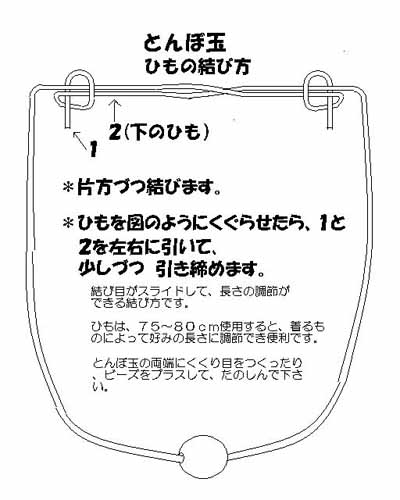 とんぼ玉
ひもの結び方
2(下のひも)
1
＊片方づつ結びます。
＊ひもを図のようにくぐらせたら、1と
2を左右に引いて、
少しづつ 引き締めます。
結び目がスライドして、長さの調節が
できる結び方です。
ひもは、７５～８０ｃｍ使用すると、着るも
のによって好みの長さに調節でき便利です。
とんぼ玉の両端にくくり目をつくったり
、ビーズをプラスして、たのしんで下さ
い。